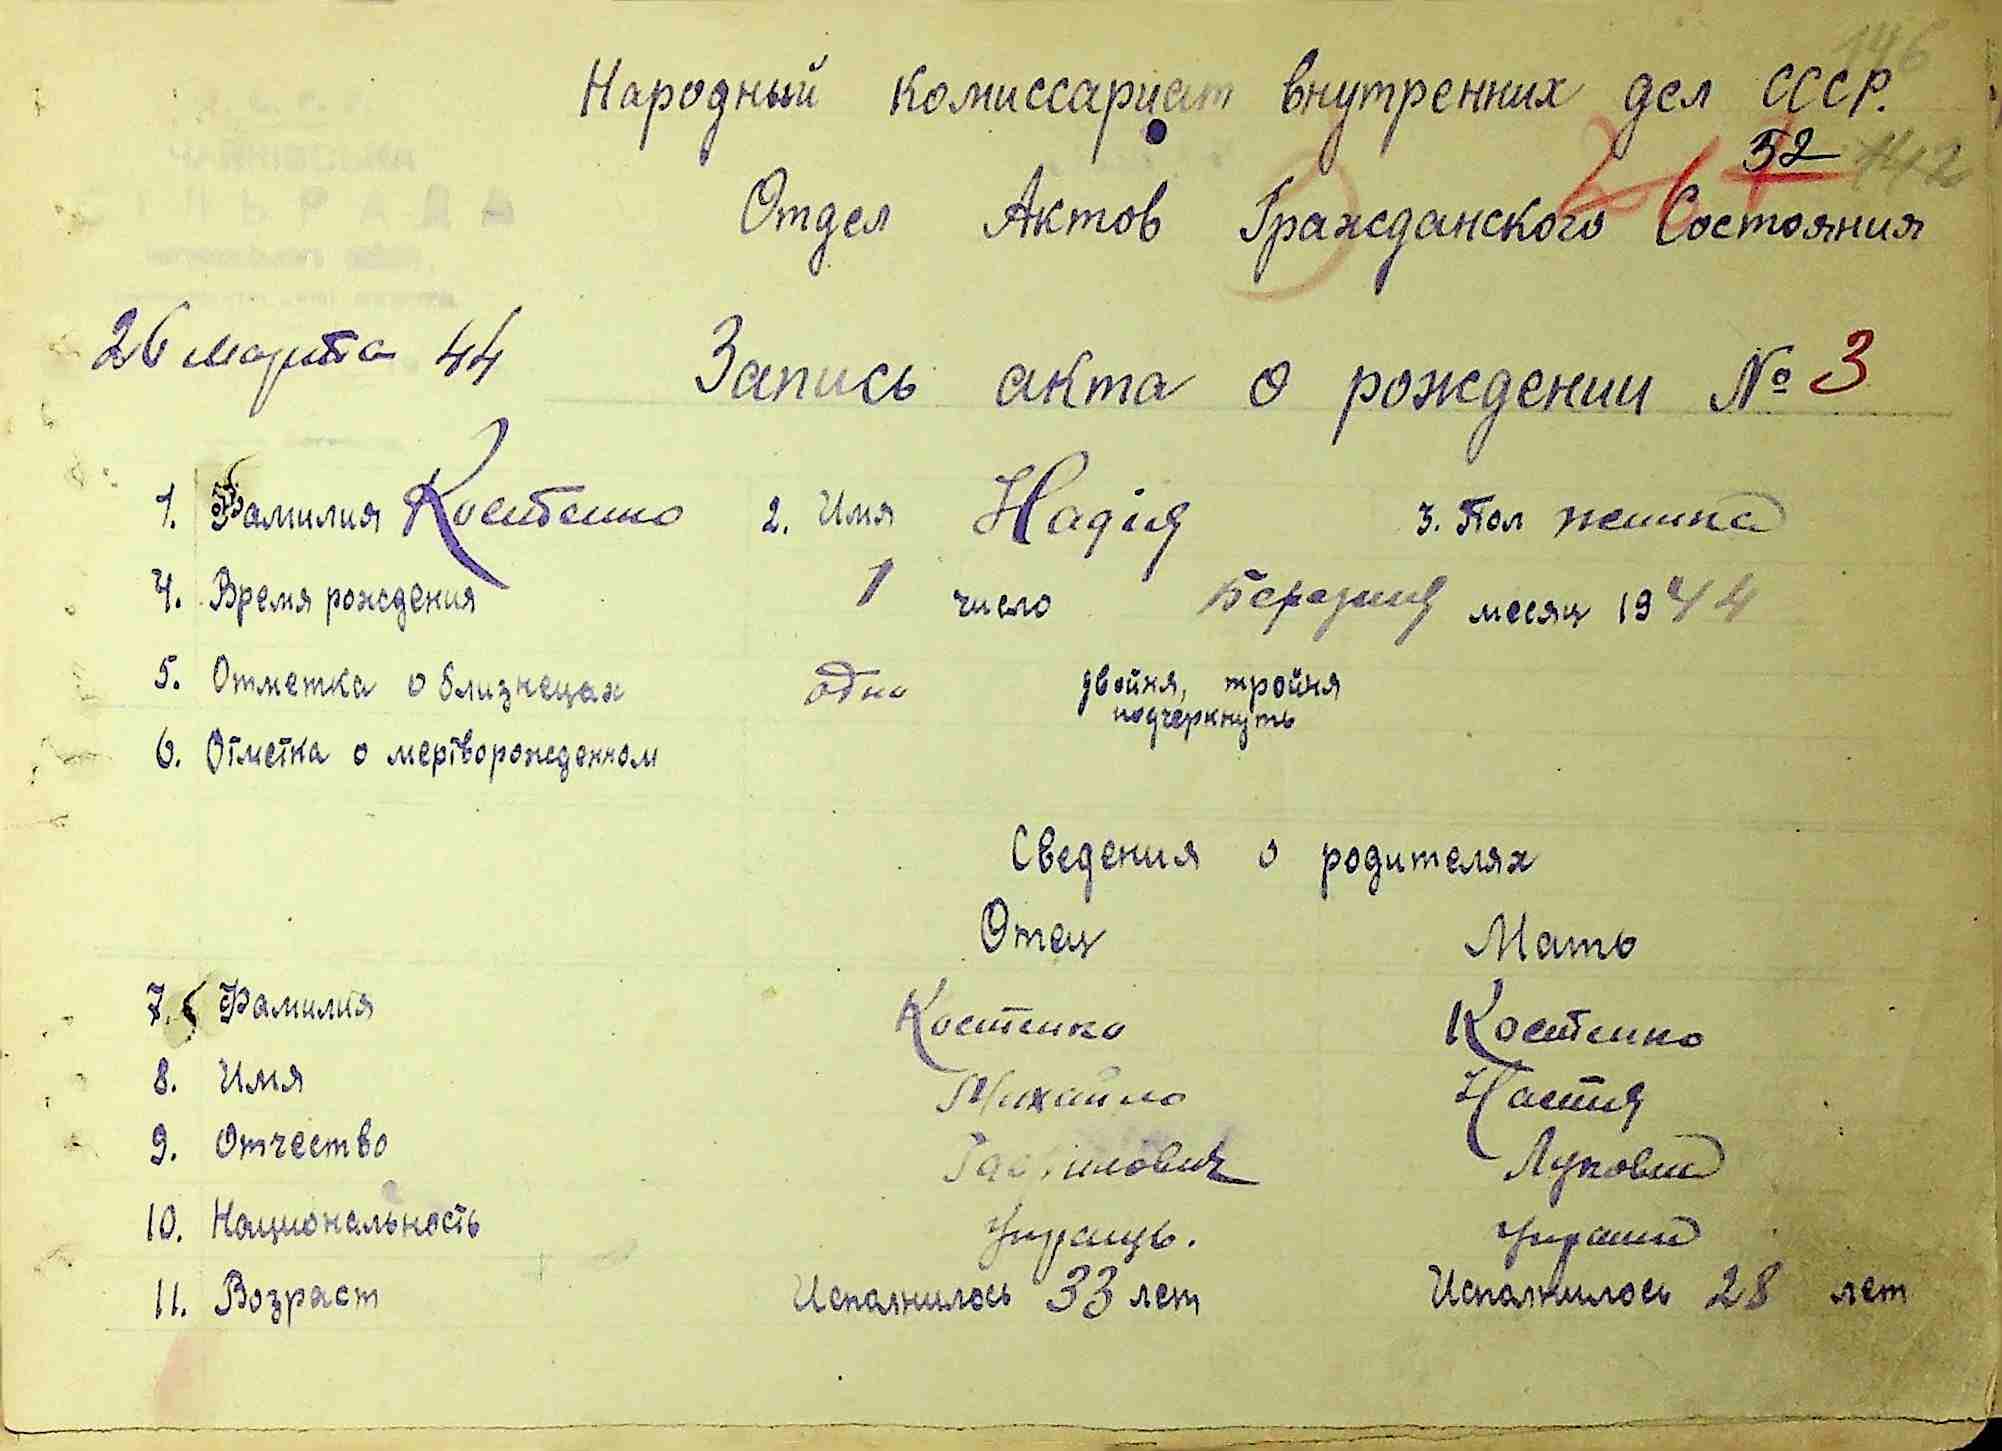 146
Народный комиссариат внутренних дел СССР.
52 142
Отдел Актов Гражданского Состояния
26 марта 44 Запись акта о рождении № 3
1. Фамилия Костенко 2. Имя Надія 3. Пол жинка
4. Время рождения 1 число Березня месяц 1944
5. Отметка о близнецах одно двойня, тройня
подчеркнуть
6. Отметка о мертворожденном
Сведения о родителях
Отец Мать
7. Фамилия Костенко Костенко
8. Имя Михайло Настя
9. Отчество
10. Национальность
11. Возраст Исполнилось 33 лет Исполнилось 28 лет